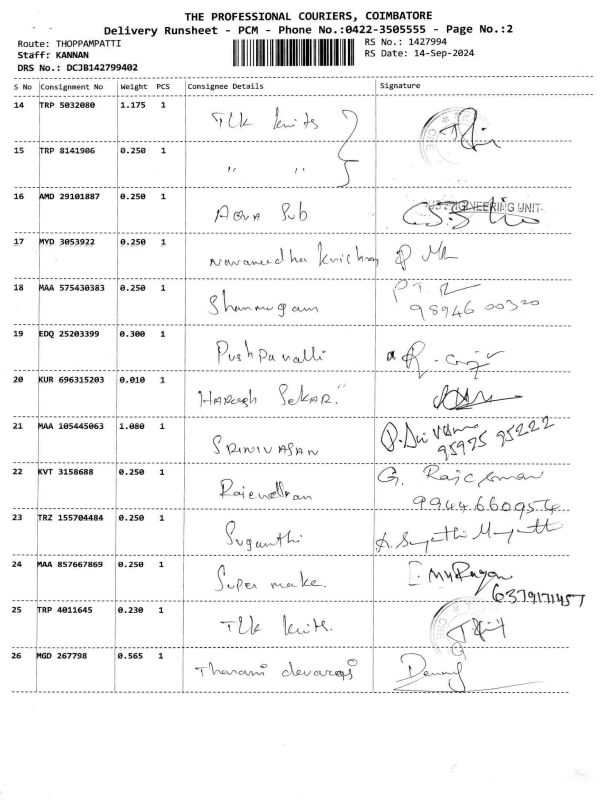 THE PROFESSIONAL COURIERS, COIMBATORE
Delivery Runsheet - PCM - Phone No.:0422-3505555 - Page No.:2
Route: THOPPAMPATTI RS No.: 1427994
Staff: KANNAN RS Date: 14-Sep-2024
DRS No.: DCJB142799402
S No Consignment No Weight PCS Consignee Details Signature
14 TRP 5032080 1.175 1 TLK knits
15 TRP 8141906 0.250 1 " "
16 AMD 29101887 0.250 1 Aqua Sub ENGINEERING UNIT
17 MYD 3053922 0.250 1 Navaneedha krishnan
18 MAA 575430383 0.250 1 Shanmugam P T R
98946 00320
19 EDQ 25203399 0.300 1 Pushpavalli
20 KUR 696315203 0.010 1 Haresh Sekar.
21 MAA 105445063 1.080 1 SRINIVASAN
95975 95222
22 KVT 3158688 0.250 1 Rajendran G.
9944660954
23 TRZ 155704484 0.250 1 Suganthi
24 MAA 857667869 0.250 1 Super make.
6379171457
25 TRP 4011645 0.230 1 TLK knits.
26 MGD 267798 0.565 1 Tharani devaraj